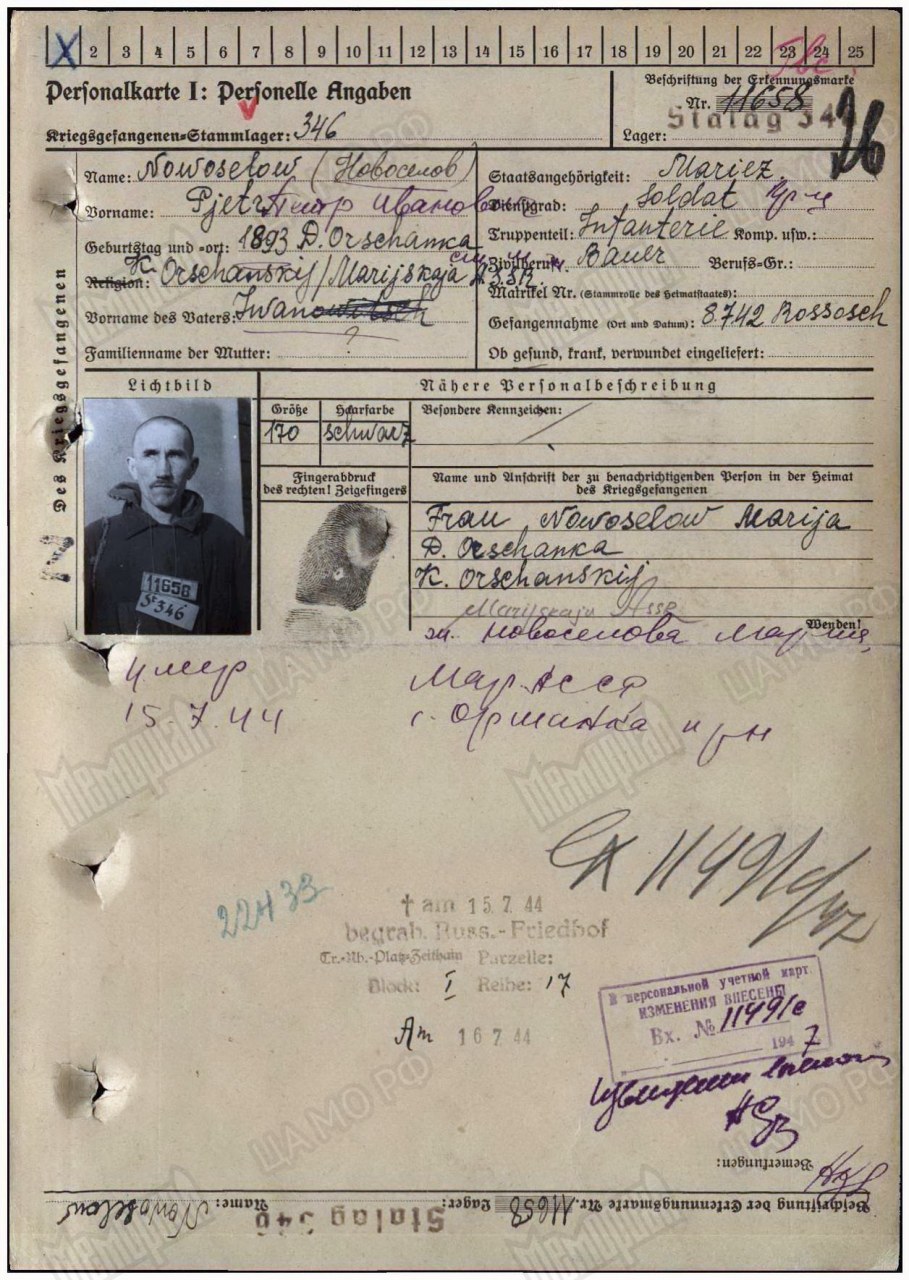 X 2 3 4 5 6 7 8 9 10 11 12 13 14 15 16 17 18 19 20 21 22 23 24 25
Tbc.
Personalkarte I: Personelle Angaben
Kriegsgefangenen=Stammlager: 346
Beschriftung der Erkennungsmarke
Nr. 11658
Lager: Stalag 34
26
Des Kriegsgefangenen
Name: Nowoselow (Новоселов)
Vorname: Pjetr Петр Иванович
Geburtstag und =ort: 1893 D. Orschanka
Religion: K. Orschanskij/Marijskaja A.S.S.R.
Vorname des Vaters: Iwan
Familienname der Mutter: ?
Staatsangehörigkeit: Mariez.
Dienstgrad: Soldat
Truppenteil: Infanterie Komp. usw.:
Zivilberuf: Bauer Berufs=Gr.:
Matrikel Nr. (Stammrolle des Heimatstaates):
Gefangennahme (Ort und Datum): 8.7.42 Rossosch
Ob gesund, krank, verwundet eingeliefert:
Lichtbild
Nähere Personalbeschreibung
Größe Haarfarbe Besondere Kennzeichen:
170 schwarz
Fingerabdruck
des rechten! Zeigefingers
11658
St 346
Name und Anschrift der zu benachrichtigenden Person in der Heimat
des Kriegsgefangenen
Frau Nowoselow Marija
D. Orschanka
K. Orschanskij
Marijskaja Assr
Wenden!
ж. Новоселова Мария,
Умер
15.7.44
МарАССР
с. Оршанка
22433
† am 15 7 44
begrab. Russ.-Friedhof
Tr.-Üb.-Platz-Zeithain Parzelle:
Block: I Reihe: 17
Am 16 7 44
В персональной учетной карт.
ИЗМЕНЕНИЯ ВНЕСЕНЫ
Вх. № 11491с
194 7
Bemerkungen:
Beschriftung der Erkennungsmarke Nr. 11658 Lager: Stalag 346 Name: Nowoselow
Мемориал
ЦАМО РФ